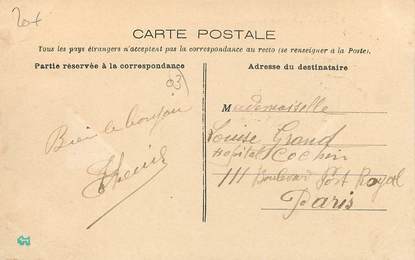 20f
CARTE POSTALE
Tous les pays étrangers n'acceptent pas la correspondance au recto (se renseigner à la Poste).
Partie réservée à la correspondance
Adresse du destinataire
(03)
Bien le bonjour
Mademoiselle
Louise Grand
Hopital Cochin
111 Boulevard Port Royal
Paris